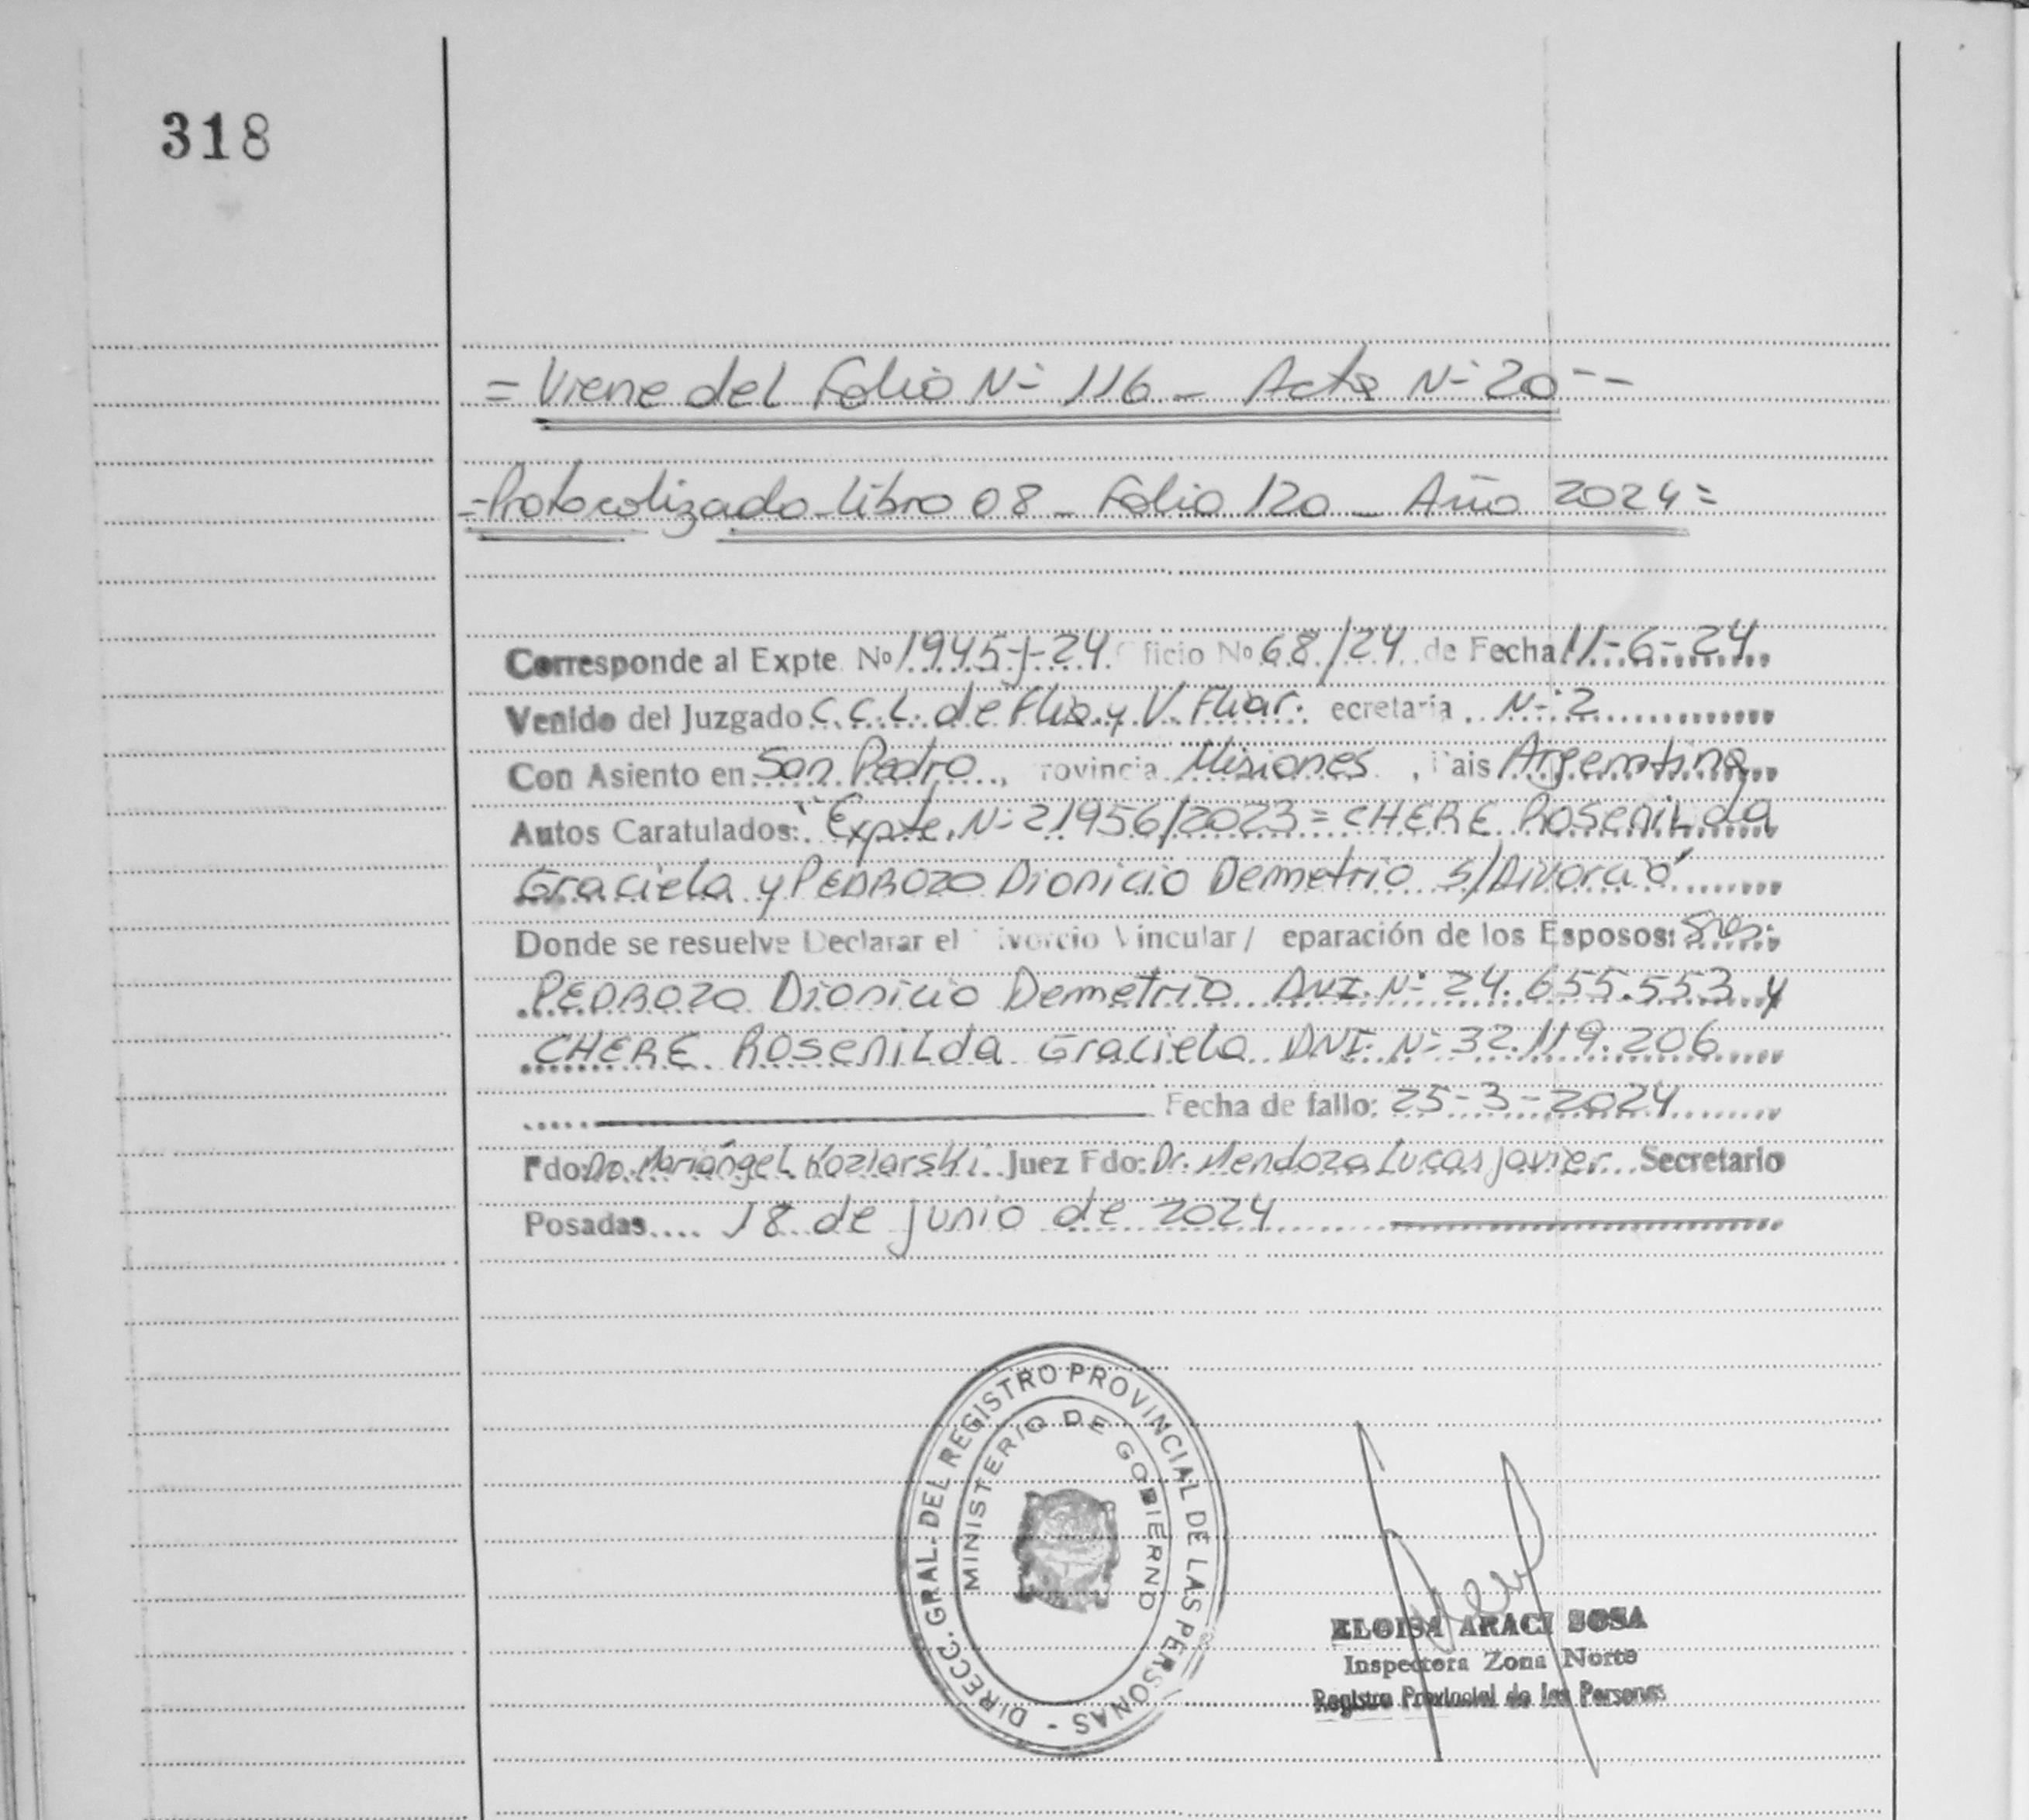 318
= Viene del Folio N- 116 - Acta N- 20 --
=Protocolizado - Libro 08 - Folio 120 - Año 2024 =
Corresponde al Expte. Nº 1945-J-24 ficio Nº 68/24 de Fecha 11-6-24
Venido del Juzgado C.C.L. de Flia y V. Fliar. ecretaria N-2
Con Asiento en San Pedro, rovincia Misiones, Pais Argentina
Autos Caratulados: "Expte. N- 21956/2023 = CHERE Rosenilda
Graciela y PEDROZO Dionicio Demetrio s/Divorcio"
Donde se resuelve Declarar el ivorcio Vincular/ eparación de los Esposos: Sres:
PEDROZO Dionicio Demetrio DNI. N- 24.655.553 y
CHERE Rosenilda Graciela DNI. N- 32.119.206
Fecha de fallo: 25-3-2024
Fdo: Dra. Mariángel Koziarski Juez Fdo: Dr. Mendoza Lucas Javier Secretario
Posadas 18 de junio de 2024
DIRECC. GRAL. DEL REGISTRO PROVINCIAL DE LAS PERSONAS -
MINISTERIO DE GOBIERNO
ELOISA ARACI SOSA
Inspectora Zona Norte
Registro Provincial de las Personas